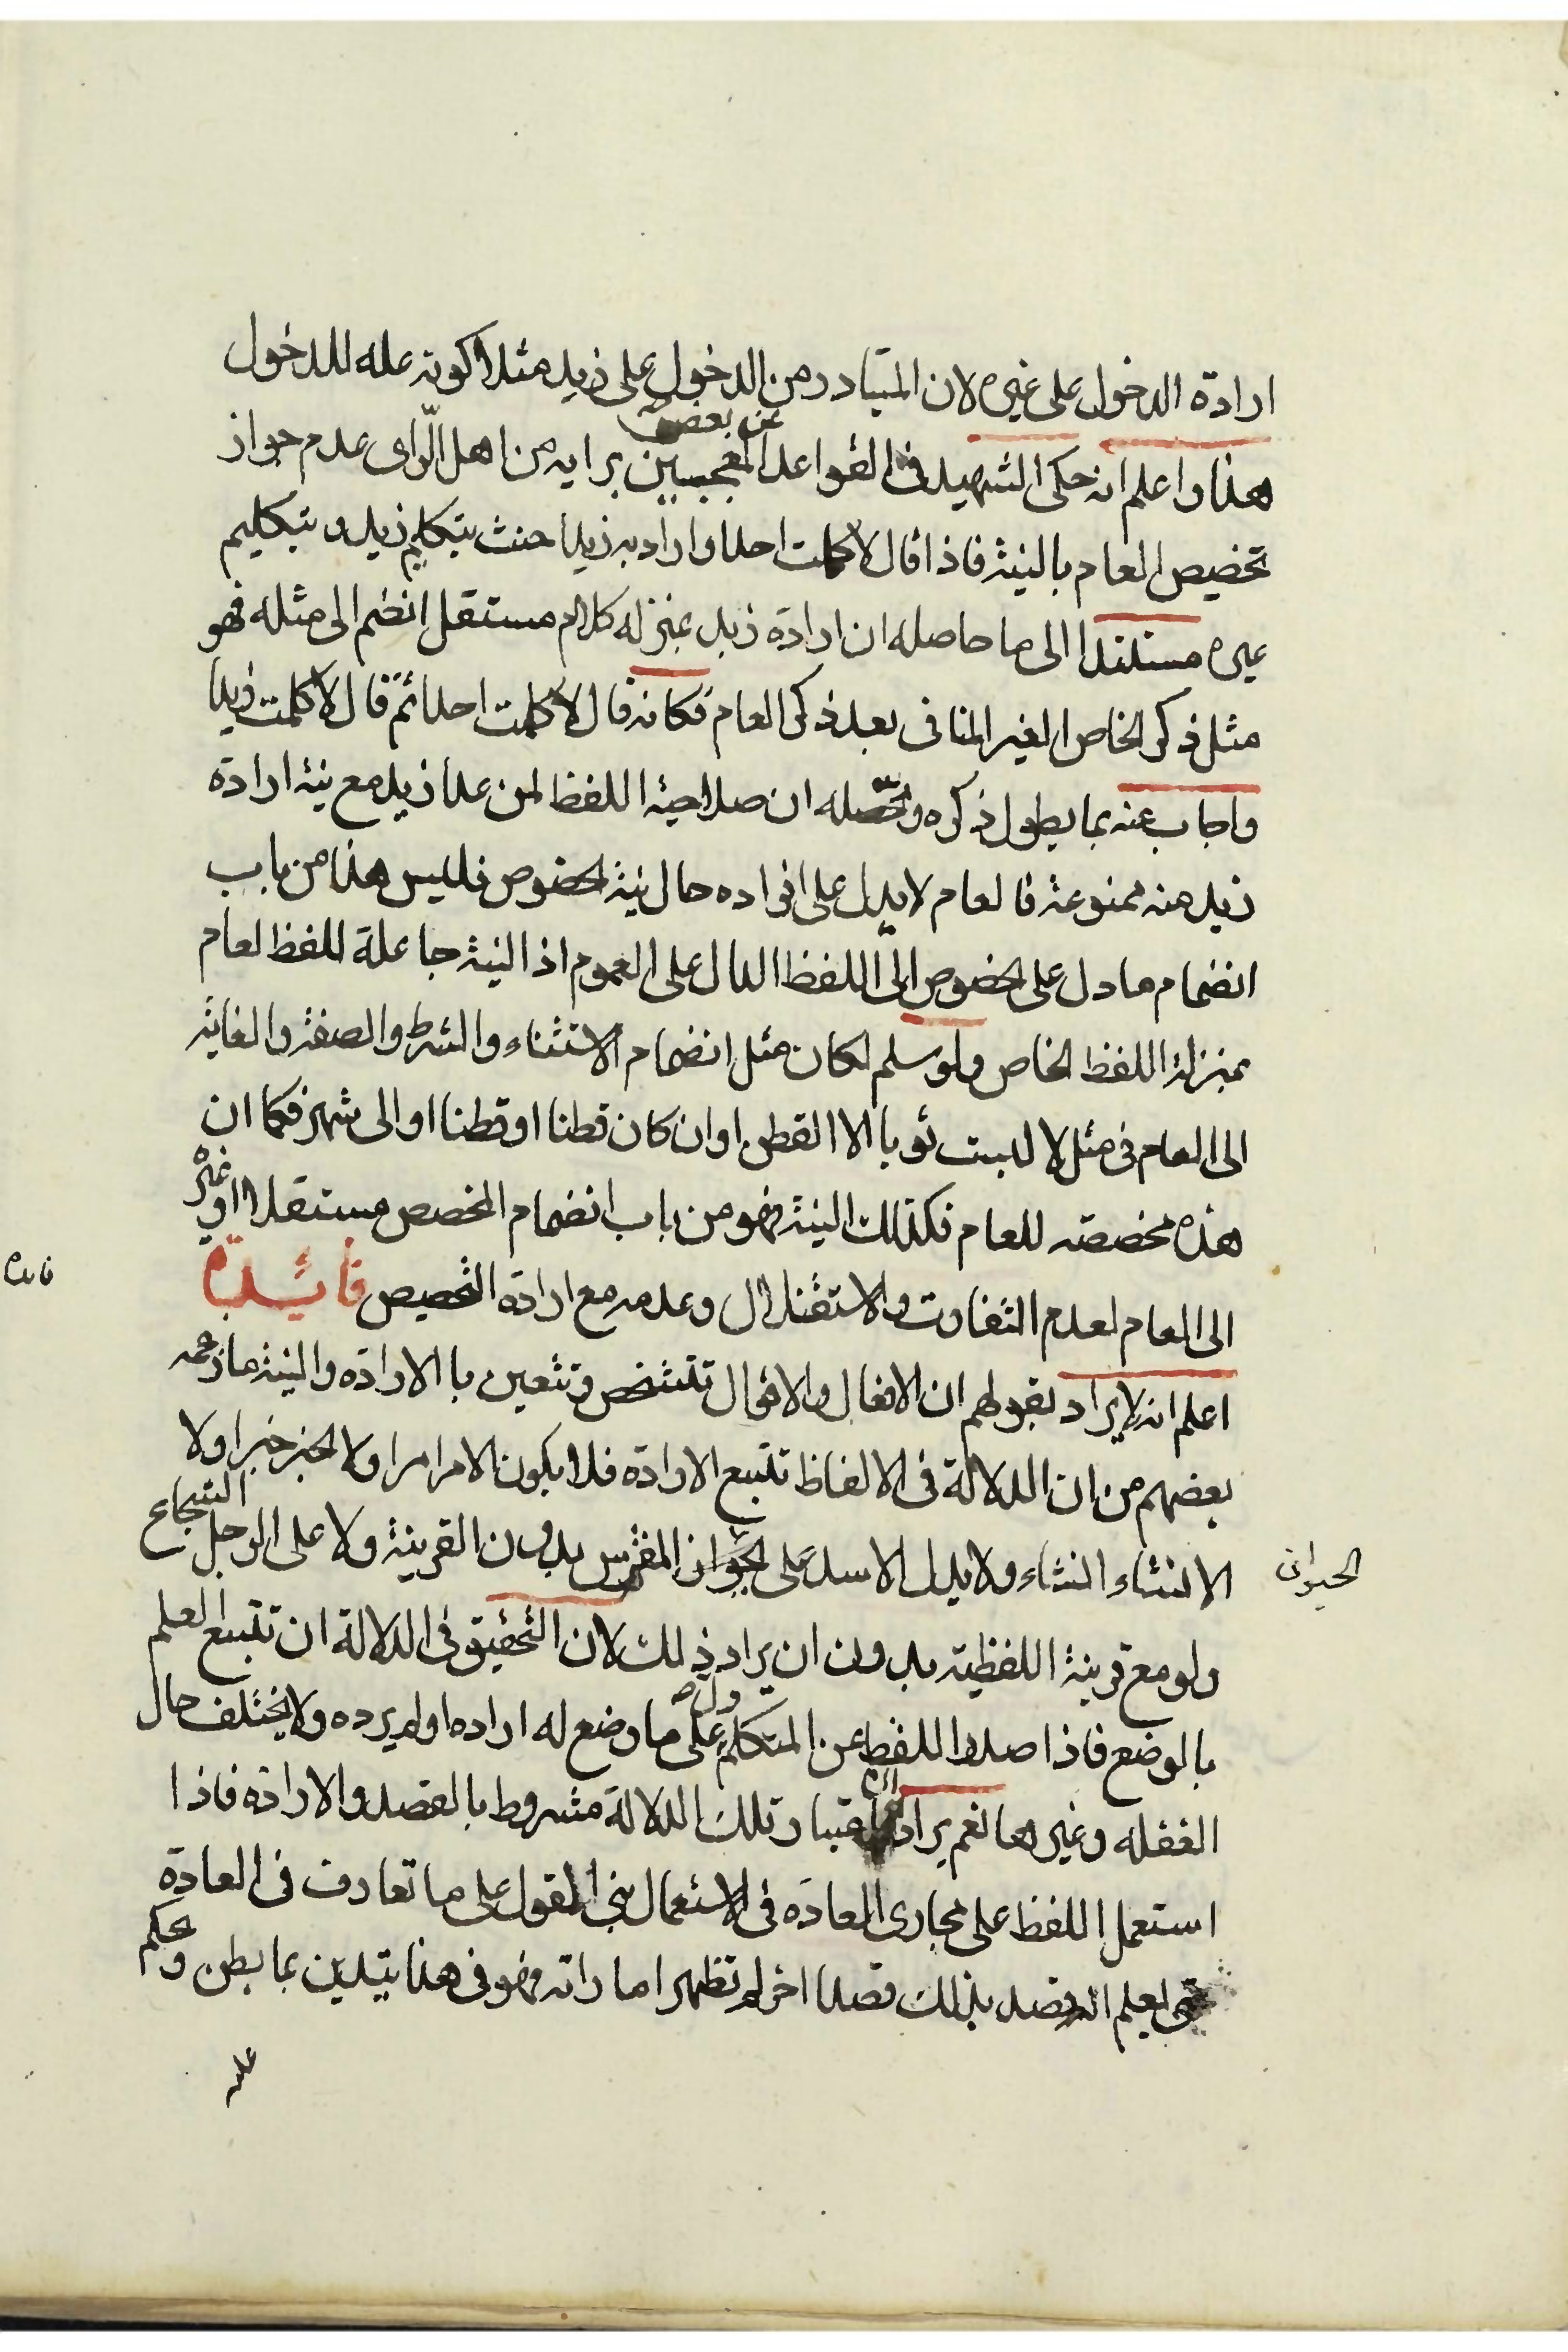 ارادة الدخول على غيره لان المتبادر من الدخول على زيد مثلا كونه علة للدخول
عن بعض
هذا واعلم انه حكى الشهيد في القواعد المعجبين برايه من اهل الرّاى عدم جواز
تخصيص العام بالنية فاذا قال لا كلمت احدا واراد به زيدا حنث بتكليم زيد وبتكليم
غيره مستندا الى ما حاصله ان ارادة زيد بمنزلة كلام مستقل انضم الى مثله فهو
مثل ذكر الخاص الغير المنافى بعد ذكر العام فكانه قال لا كلمت احدا ثم قال لا كلمت زيدا
واجاب عنه بما يطول ذكره ومحصّله ان صلاحية اللفظ لمن عدا زيد مع نية ارادة
زيد منه ممنوعة فالعام لا يدل على افراده حال نية الخصوص فليس هذا من باب
انضمام ما دل على الخصوص الى اللفظ الدال على العموم اذ النية جاعلة للفظ لعام
بمنزلة اللفظ الخاص ولو سلم لكان مثل انضمام الاستثناء والشرط والصفة والغاية
الى العام فى مثل لا لبست ثوبا الا القطن او ان كان قطنا او قطنا او الى شهر فكما ان
هذه مخصصة للعام فكذلك النية فهو من باب انضمام المخصص مستقلا او غيره
الى العام لعدم التفاوت والاستقلال وعدمه مع ارادة التخصيص فائدة
فائده
اعلم انه لا يراد بقولهم ان الافعال والاقوال تتشخص وتتعين بالارادة والنية ما زعمه
بعضهم من ان الدلالة فى الالفاظ تتبع الارادة فلا يكون الامر امرا ولا الخبر خبرا ولا
الانشاء انشاء ولا يدل الاسد على الحيوان المفترس بدون القرينة ولا على الرجل الشجاع
الحيوان
ولو مع قرينة اللفظية بدون ان يراد ذلك لان التحقيق فى الدلالة ان تتبع العلم
بالوضع فاذا صدر اللفظ عن المتكلم دل على ما وضع له اراده او لم يرده ولا يختلف حال
الغفله وغيرها نعم يراد ان اعتبار تلك الدلالة مشروط بالقصد والارادة فاذا
استعمل اللفظ على مجارى العادة فى الاستعمال بنى المقول على ما تعارف فى العادة
حتى لعلم انه قصد بذلك قصدا اخر لم تظهر اماراته فهو فى هذا يتدين بما بطن وحكم
عليه